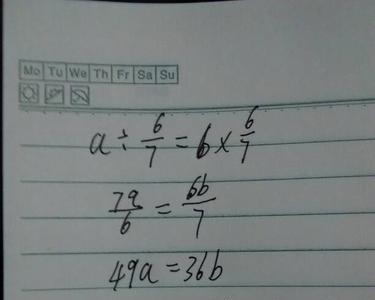 Mo Tu We Th Fr Sa Su
a ÷ 6/7 = b × 6/7
7a/6 = 6b/7
49a = 36b